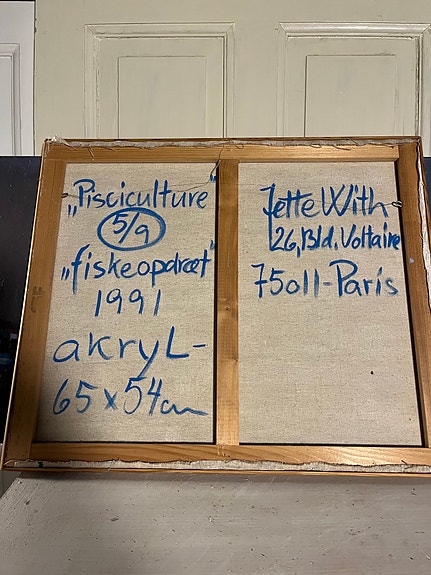 „Pisciculture"
5/9
„fiskeopdræt"
1991
akryl-
65 x 54 cm
Jette With
26, Bld, Voltaire
75011-Paris